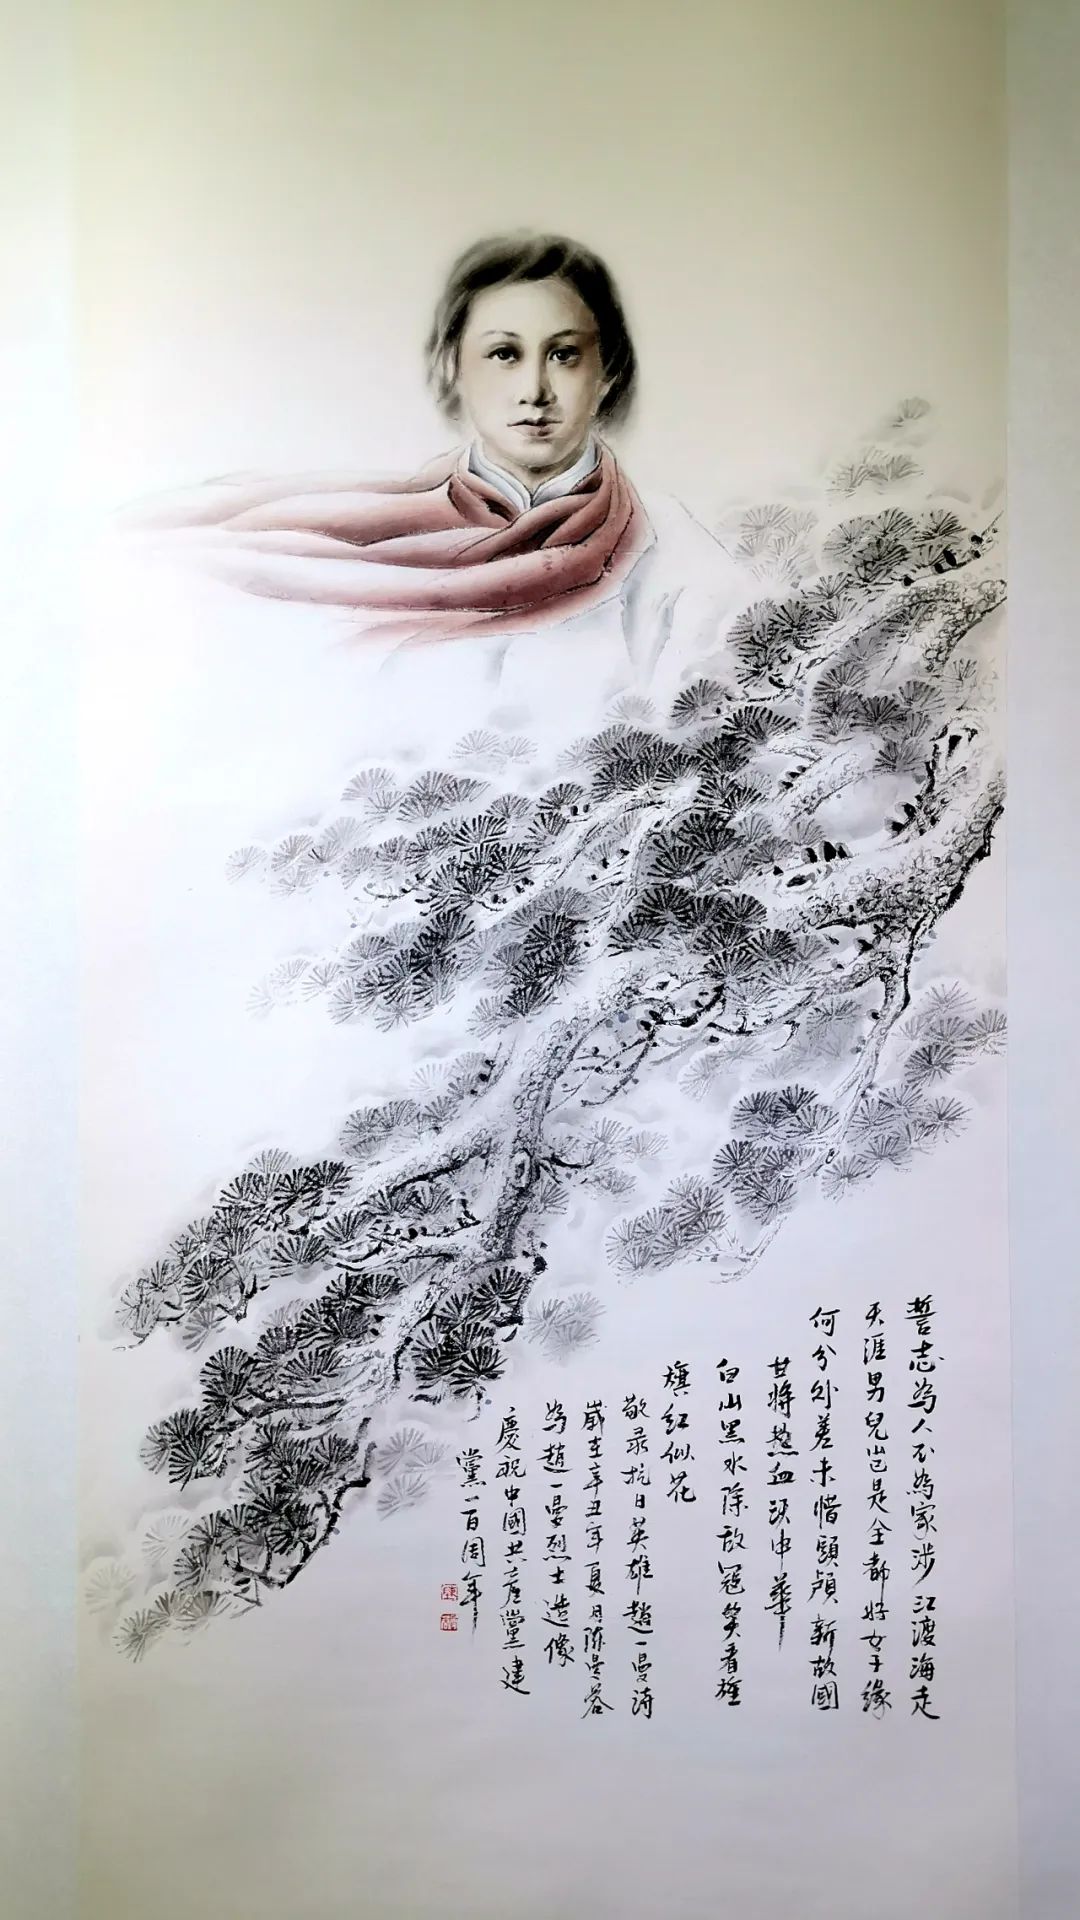 誓志為人不為家涉江渡海走
天涯男兒岂是全都好女子緣
何分外差未惜頭顱新故國
甘将热血沃中華
白山黑水除敌冦笑看旌
旗红似花
敬录抗日英雄趙一曼詩
歲在辛丑年夏月陈曼蓉
為趙一曼烈士造像
慶祝中國共産黨建
黨一百周年